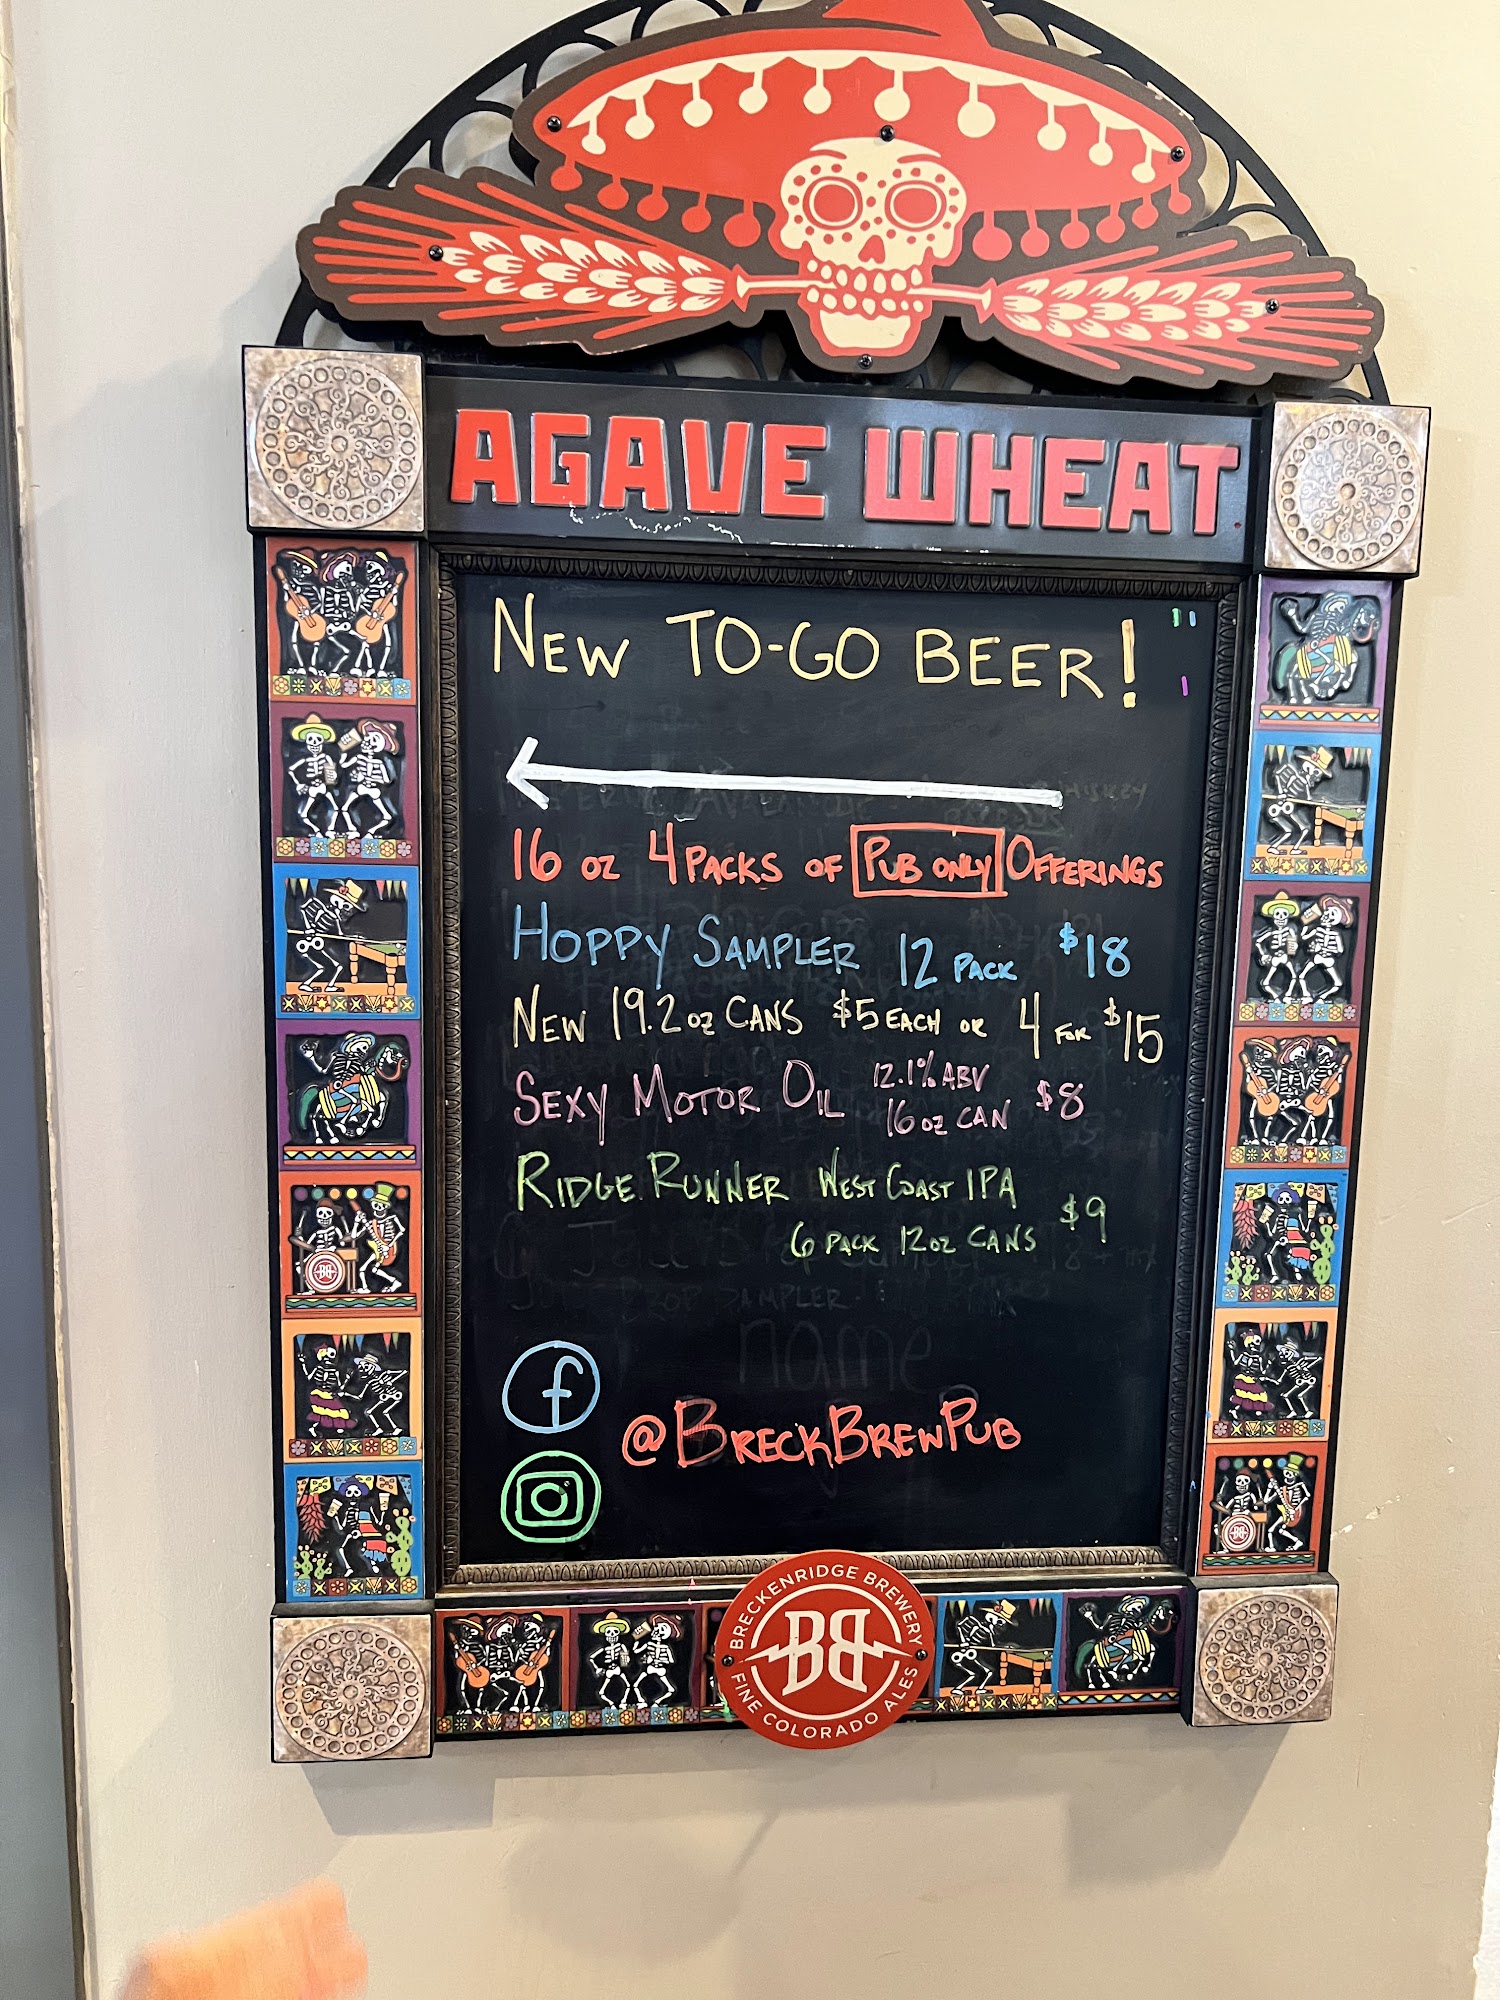 AGAVE WHEAT
NEW TO-GO BEER!
16 oz 4 PACKS OF PUB ONLY OFFERINGS
HOPPY SAMPLER 12 PACK $18
NEW 19.2oz CANS $5 EACH OR 4 FOR $15
SEXY MOTOR OIL 12.1% ABV
16oz CAN $8
RIDGE RUNNER WEST COAST IPA
6 PACK 12oz CANS $9
f
@BRECKBREWPUB
BRECKENRIDGE BREWERY
BB
FINE COLORADO ALES